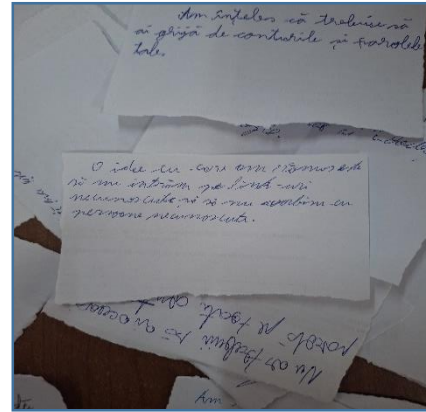 Am înteles că trebuie să
ai grijă de conturile și parolele
tale.
O idee cu care am rămas este
să nu intrăm pe link-uri
necunoscute și să nu vorbim cu
persoane necunoscute.
Nu ar trebui să
parolă pe toate
Am